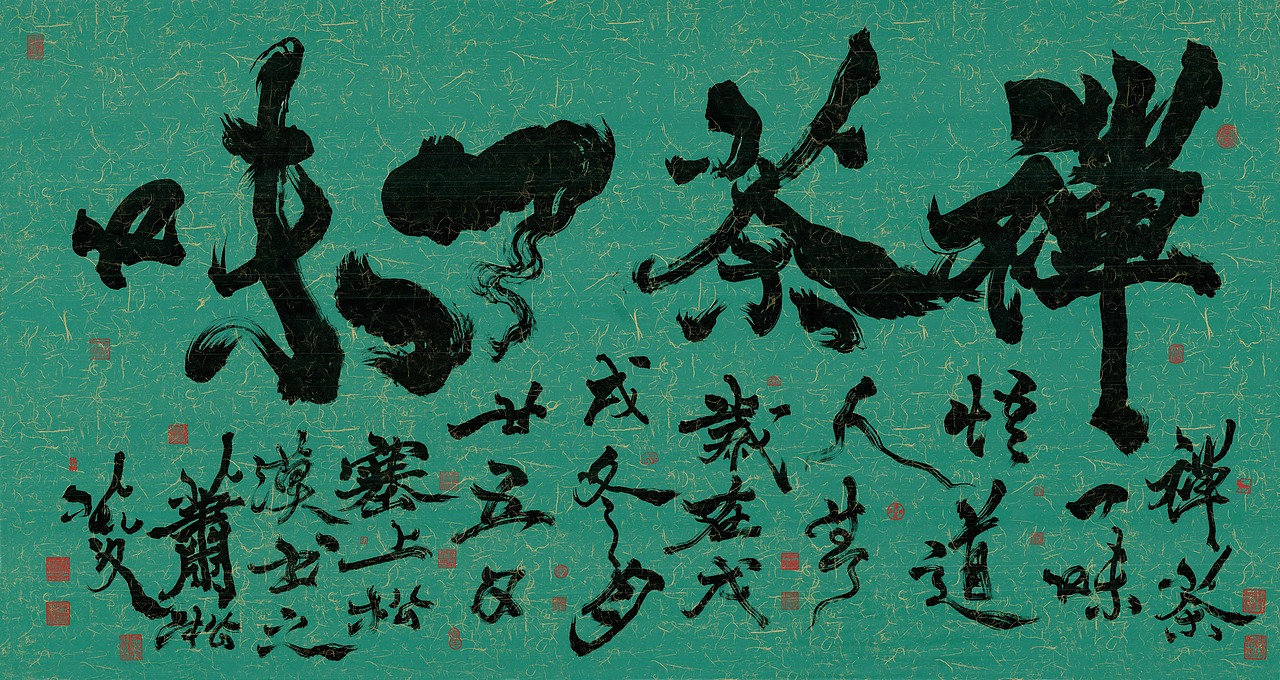 禅茶一味
禅茶
一味
悟道
人
岁在戊
戌冬夕
廿五日
塞上松
漠书之
萧松